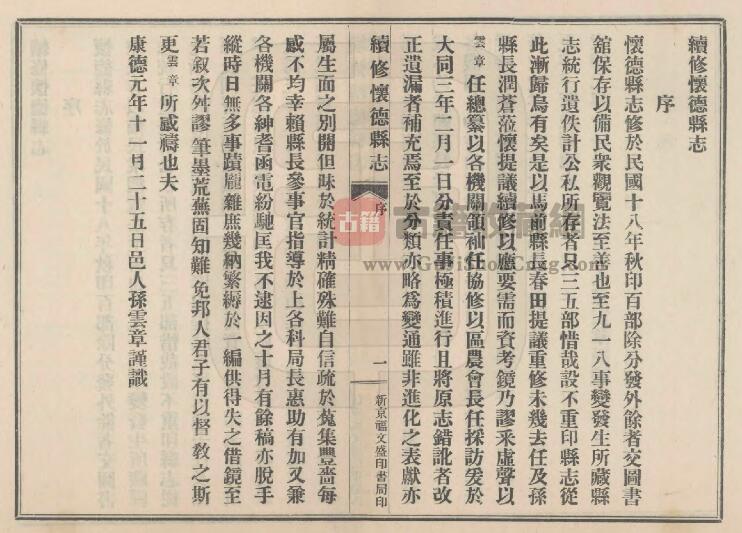 續修懷德縣志
序
懷德縣志修於民國十八年秋印百部除分發外餘者交圖書
舘保存以備民衆觀覽法至善也至九一八事變發生所藏縣
志統行遺佚計公私所存者只三五部惜哉設不重印縣志從
此漸歸烏有矣是以馬前縣長春田提議重修未幾去任及孫
縣長潤蒼蒞懷提議續修以應要需而資考鏡乃謬采虛聲以
雲章任總纂以各機關領袖任協修以區農會長任採訪爰於
大同三年二月一日分責任事極積進行且將原志錯訛者改
正遺漏者補充焉至於分類亦略爲變通雖非進化之表獻亦
續修懷德縣志
序
一
新京福文盛印書局印
屬生面之別開但昧於統計精確殊難自信疏於蒐集豐嗇每
感不均幸賴縣長參事官指導於上各科局長惠助有加又兼
各機關各紳耆函電紛馳匡我不逮因之十月有餘稿亦脫手
縱時日無多事蹟龐雜庶幾納繁縟於一編供得失之借鏡至
若叙次舛謬筆墨荒蕪固知難免邦人君子有以督教之斯
更雲章所感禱也夫
康德元年十一月二十五日邑人孫雲章謹識
古籍